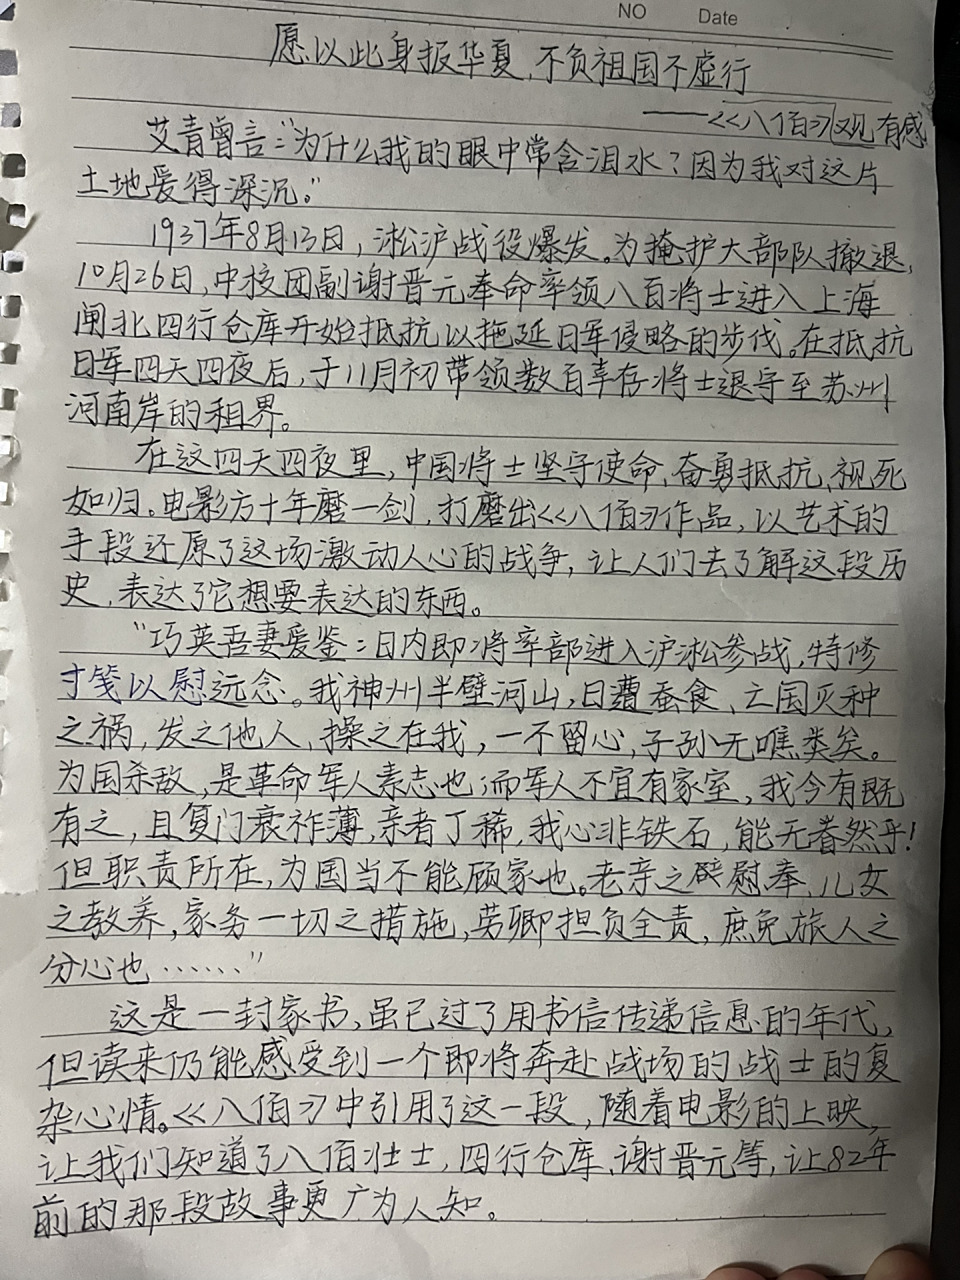 NO Date
愿以此身报华夏,不负祖国不虚行
——<<八佰>>观有感
艾青曾言:“为什么我的眼中常含泪水?因为我对这片
土地爱得深沉。”
1937年8月13日,淞沪战役爆发。为掩护大部队撤退,
10月26日,中校团副谢晋元奉命率领八百将士进入上海
闸北四行仓库开始抵抗,以拖延日军侵略的步伐。在抵抗
日军四天四夜后,于11月初带领数百幸存将士退守至苏州
河南岸的租界。
在这四天四夜里,中国将士坚守使命、奋勇抵抗、视死
如归。电影方十年磨一剑,打磨出<<八佰>>作品,以艺术的
手段还原了这场激动人心的战争,让人们去了解这段历
史,表达了它想要表达的东西。
“巧英吾妻爱鉴:日内即将率部进入沪淞参战,特修
寸笺以慰远念。我神州半壁河山,日遭蚕食、亡国灭种
之祸,发之他人,操之在我,一不留心,子孙无噍类矣。
为国杀敌,是革命军人素志也;而军人不宜有家室,我今有既
有之,且复门衰祚薄,亲者丁稀,我心非铁石,能无眷然乎!
但职责所在,为国当不能顾家也。老亲之慰奉,儿女
之教养,家务一切之措施,劳卿担负全责,庶免旅人之
分心也……”
这是一封家书,虽已过了用书信传递信息的年代,
但读来仍能感受到一个即将奔赴战场的战士的复
杂心情。<<八佰>>中引用了这一段,随着电影的上映,
让我们知道了八佰壮士,四行仓库、谢晋元等,让82年
前的那段故事更广为人知。